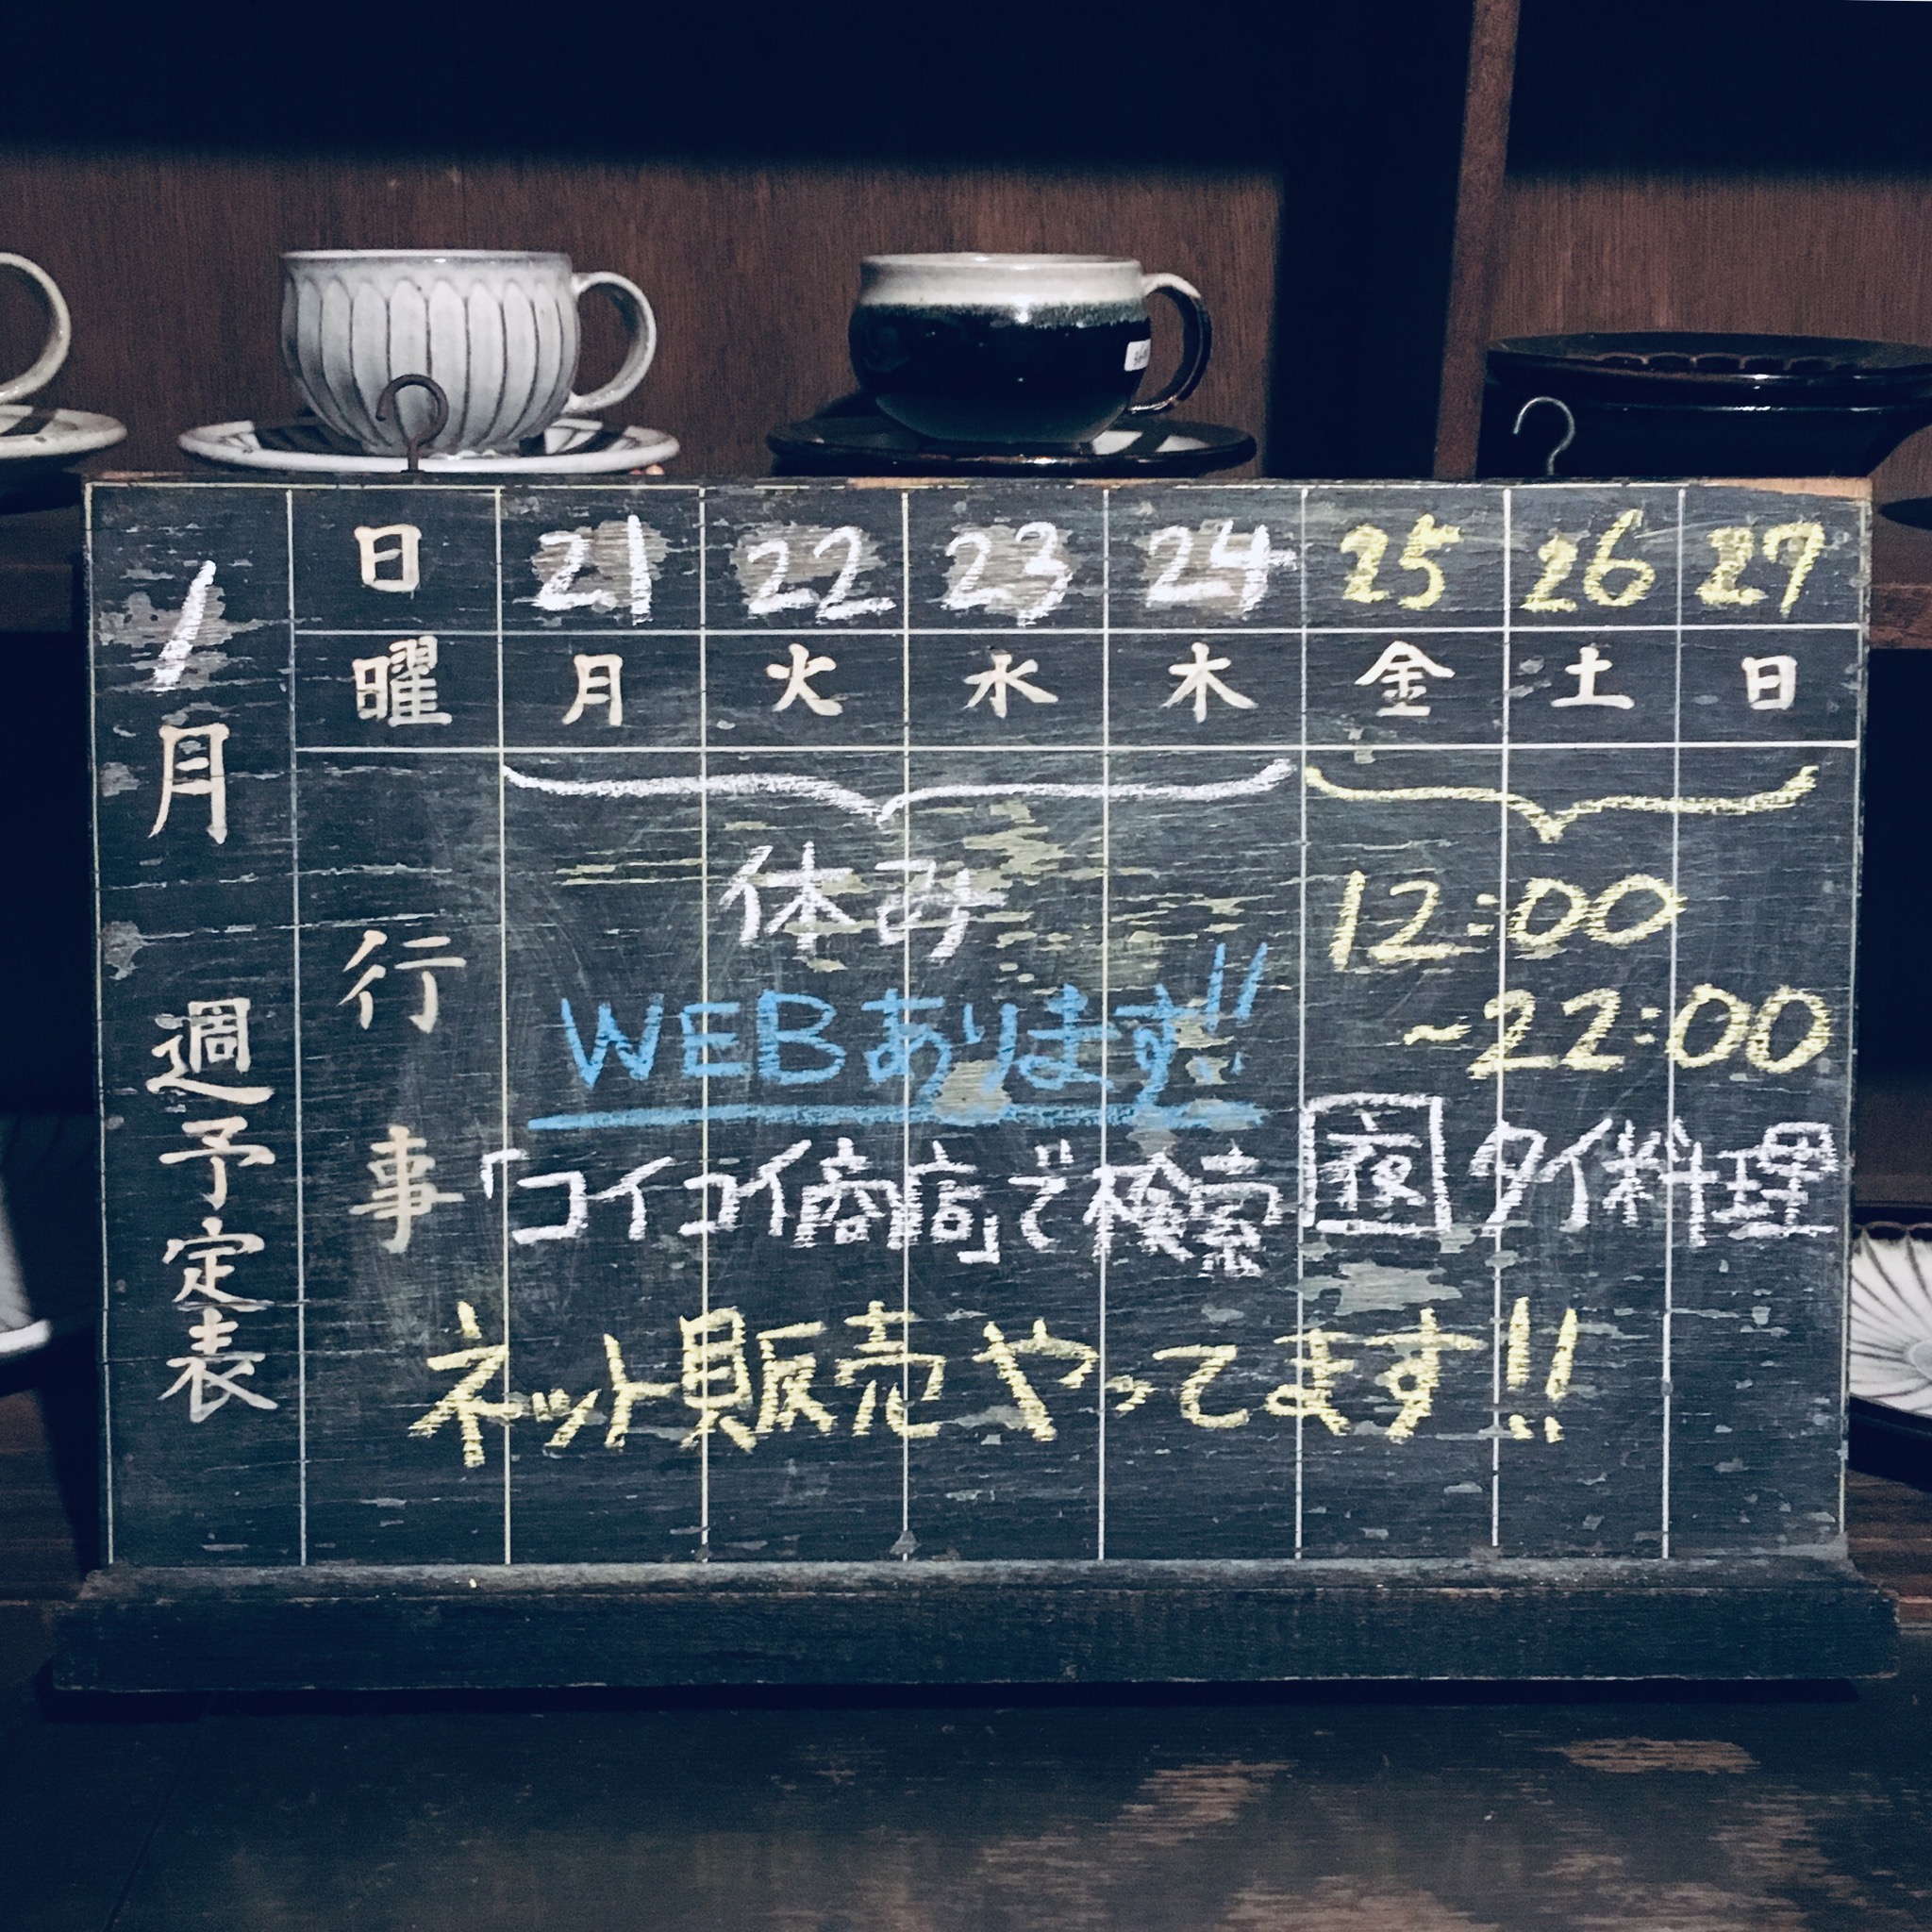 1月 週予定表
日 21 22 23 24 25 26 27
曜 月 火 水 木 金 土 日
行事
休み
WEBあります!!
「コイコイ商店」で検索
12:00
~22:00
夜 タイ料理
ネット販売やってます!!